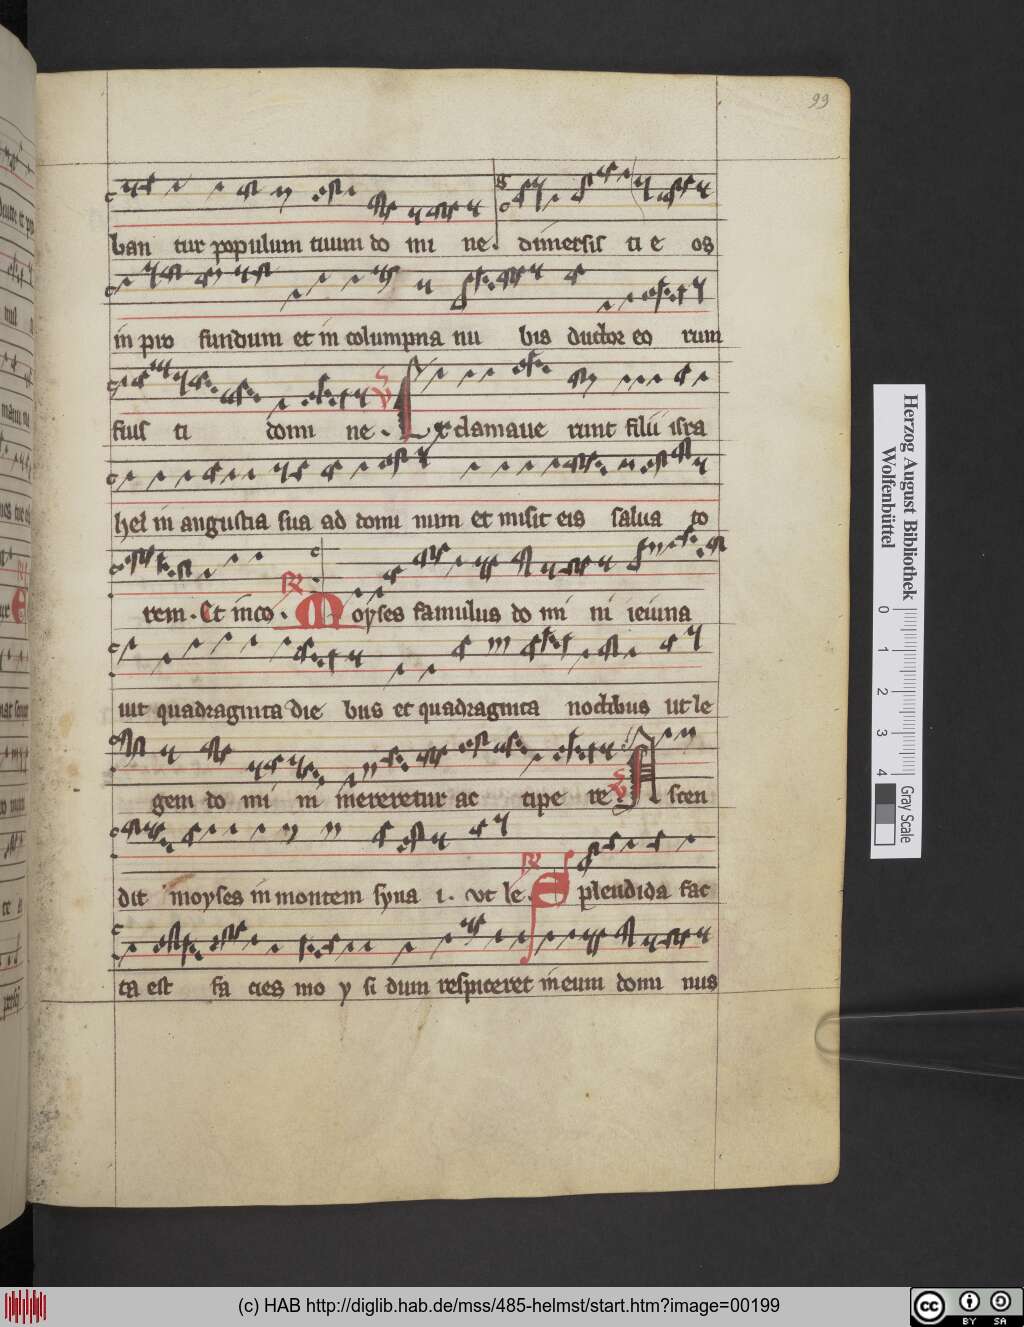 99
ban tur populum tuum do mi ne. dimersis ti e os
in pro fundum et in columpna nu bis ductor eo rum
fuis ti domi ne. V Ex clamaue runt filii isra
hel in angustia sua ad domi num et misit eis salua to
rem. Et in co. R Moyses famulus do mi ni ieiuna
uit quadraginta die bus et quadraginta noctibus ut le
gem do mi ni mereretur ac cipe re. V Ascen
dit moyses in montem syna i. vt le. R Splendida fac
ta est fa cies mo y si dum respiceret in eum domi nus
Herzog August Bibliothek
Wolfenbüttel
0 1 2 3 4
Gray Scale
(c) HAB http://diglib.hab.de/mss/485-helmst/start.htm?image=00199
cc BY SA